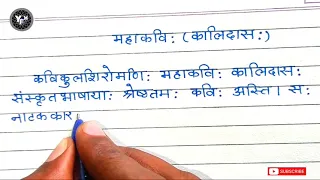 महाकवि: (कालिदास:)
कविकुलशिरोमणि: महाकवि: कालिदास:
संस्कृतभाषाया: श्रेष्ठतम: कवि: अस्ति। स:
नाटककार।
SUBSCRIBE